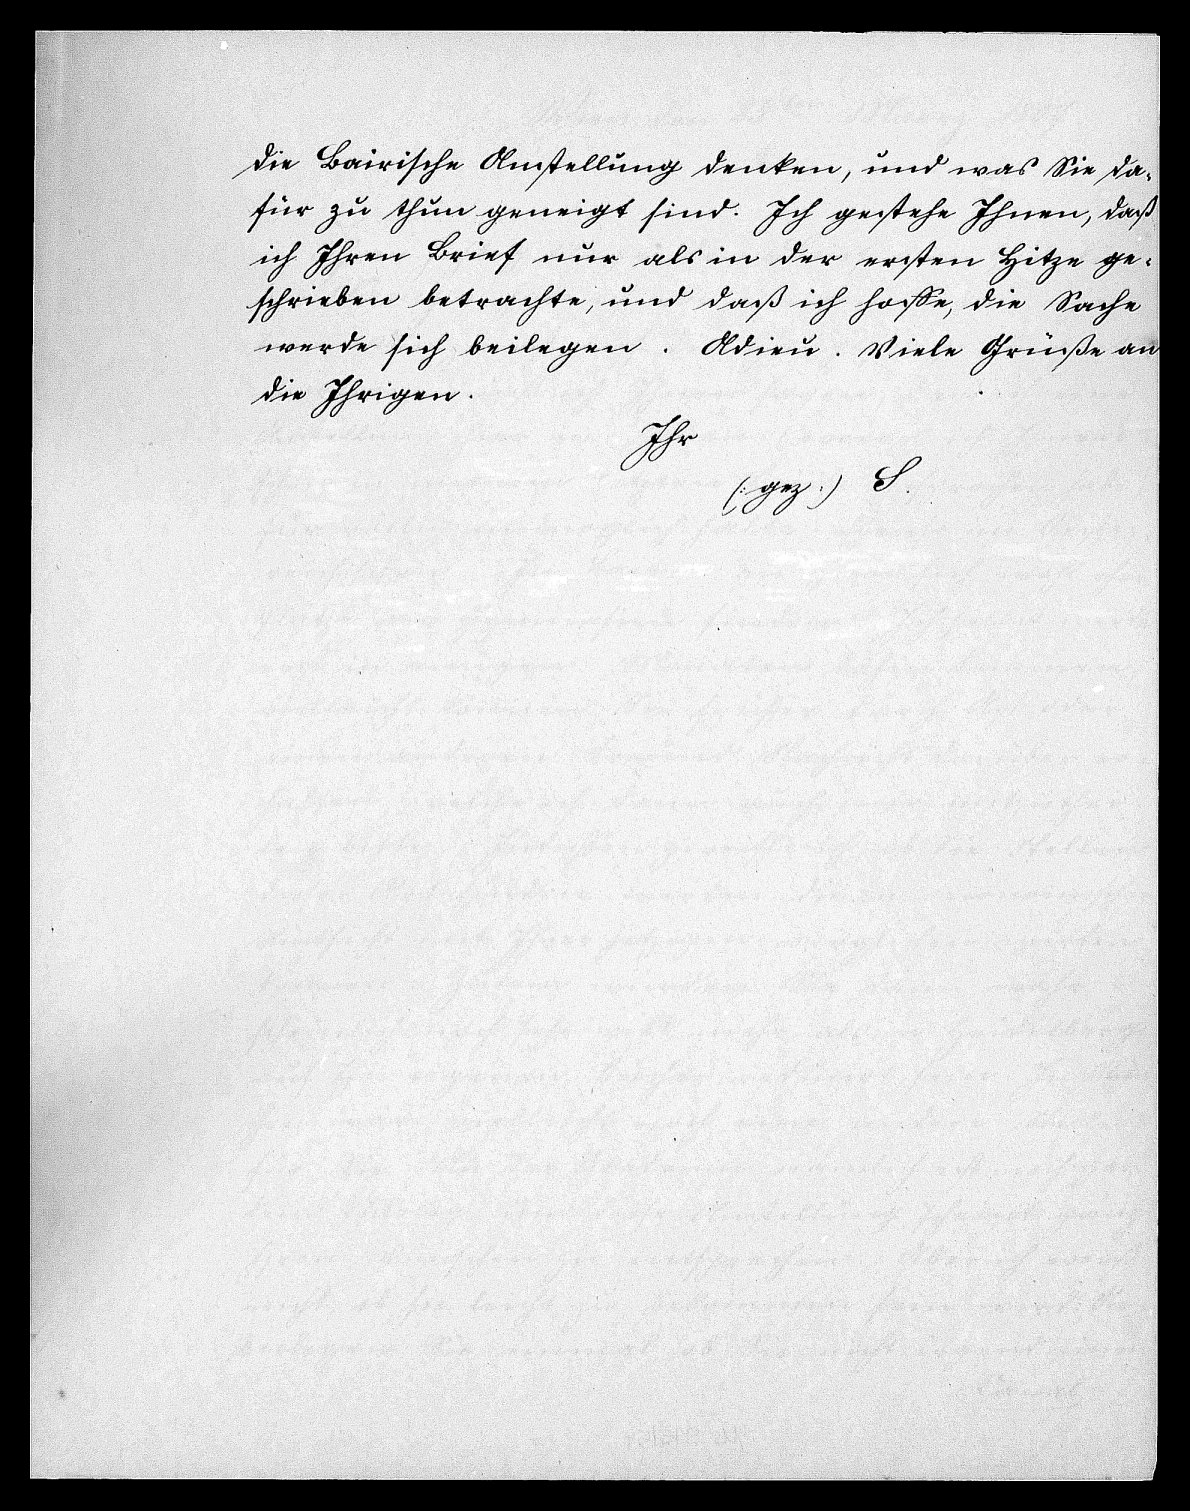 die Bairische Anstellung denken, und was Sie da-
für zu thun geneigt sind. Ich gestehe Ihnen, daß
ich Ihren Brief nur als in der ersten Hitze ge-
schrieben betrachte, und daß ich hoffe, die Sache
werde sich beilegen. Adieu. Viele Grüße an
die Ihrigen.
Ihr
(: gez :) S.